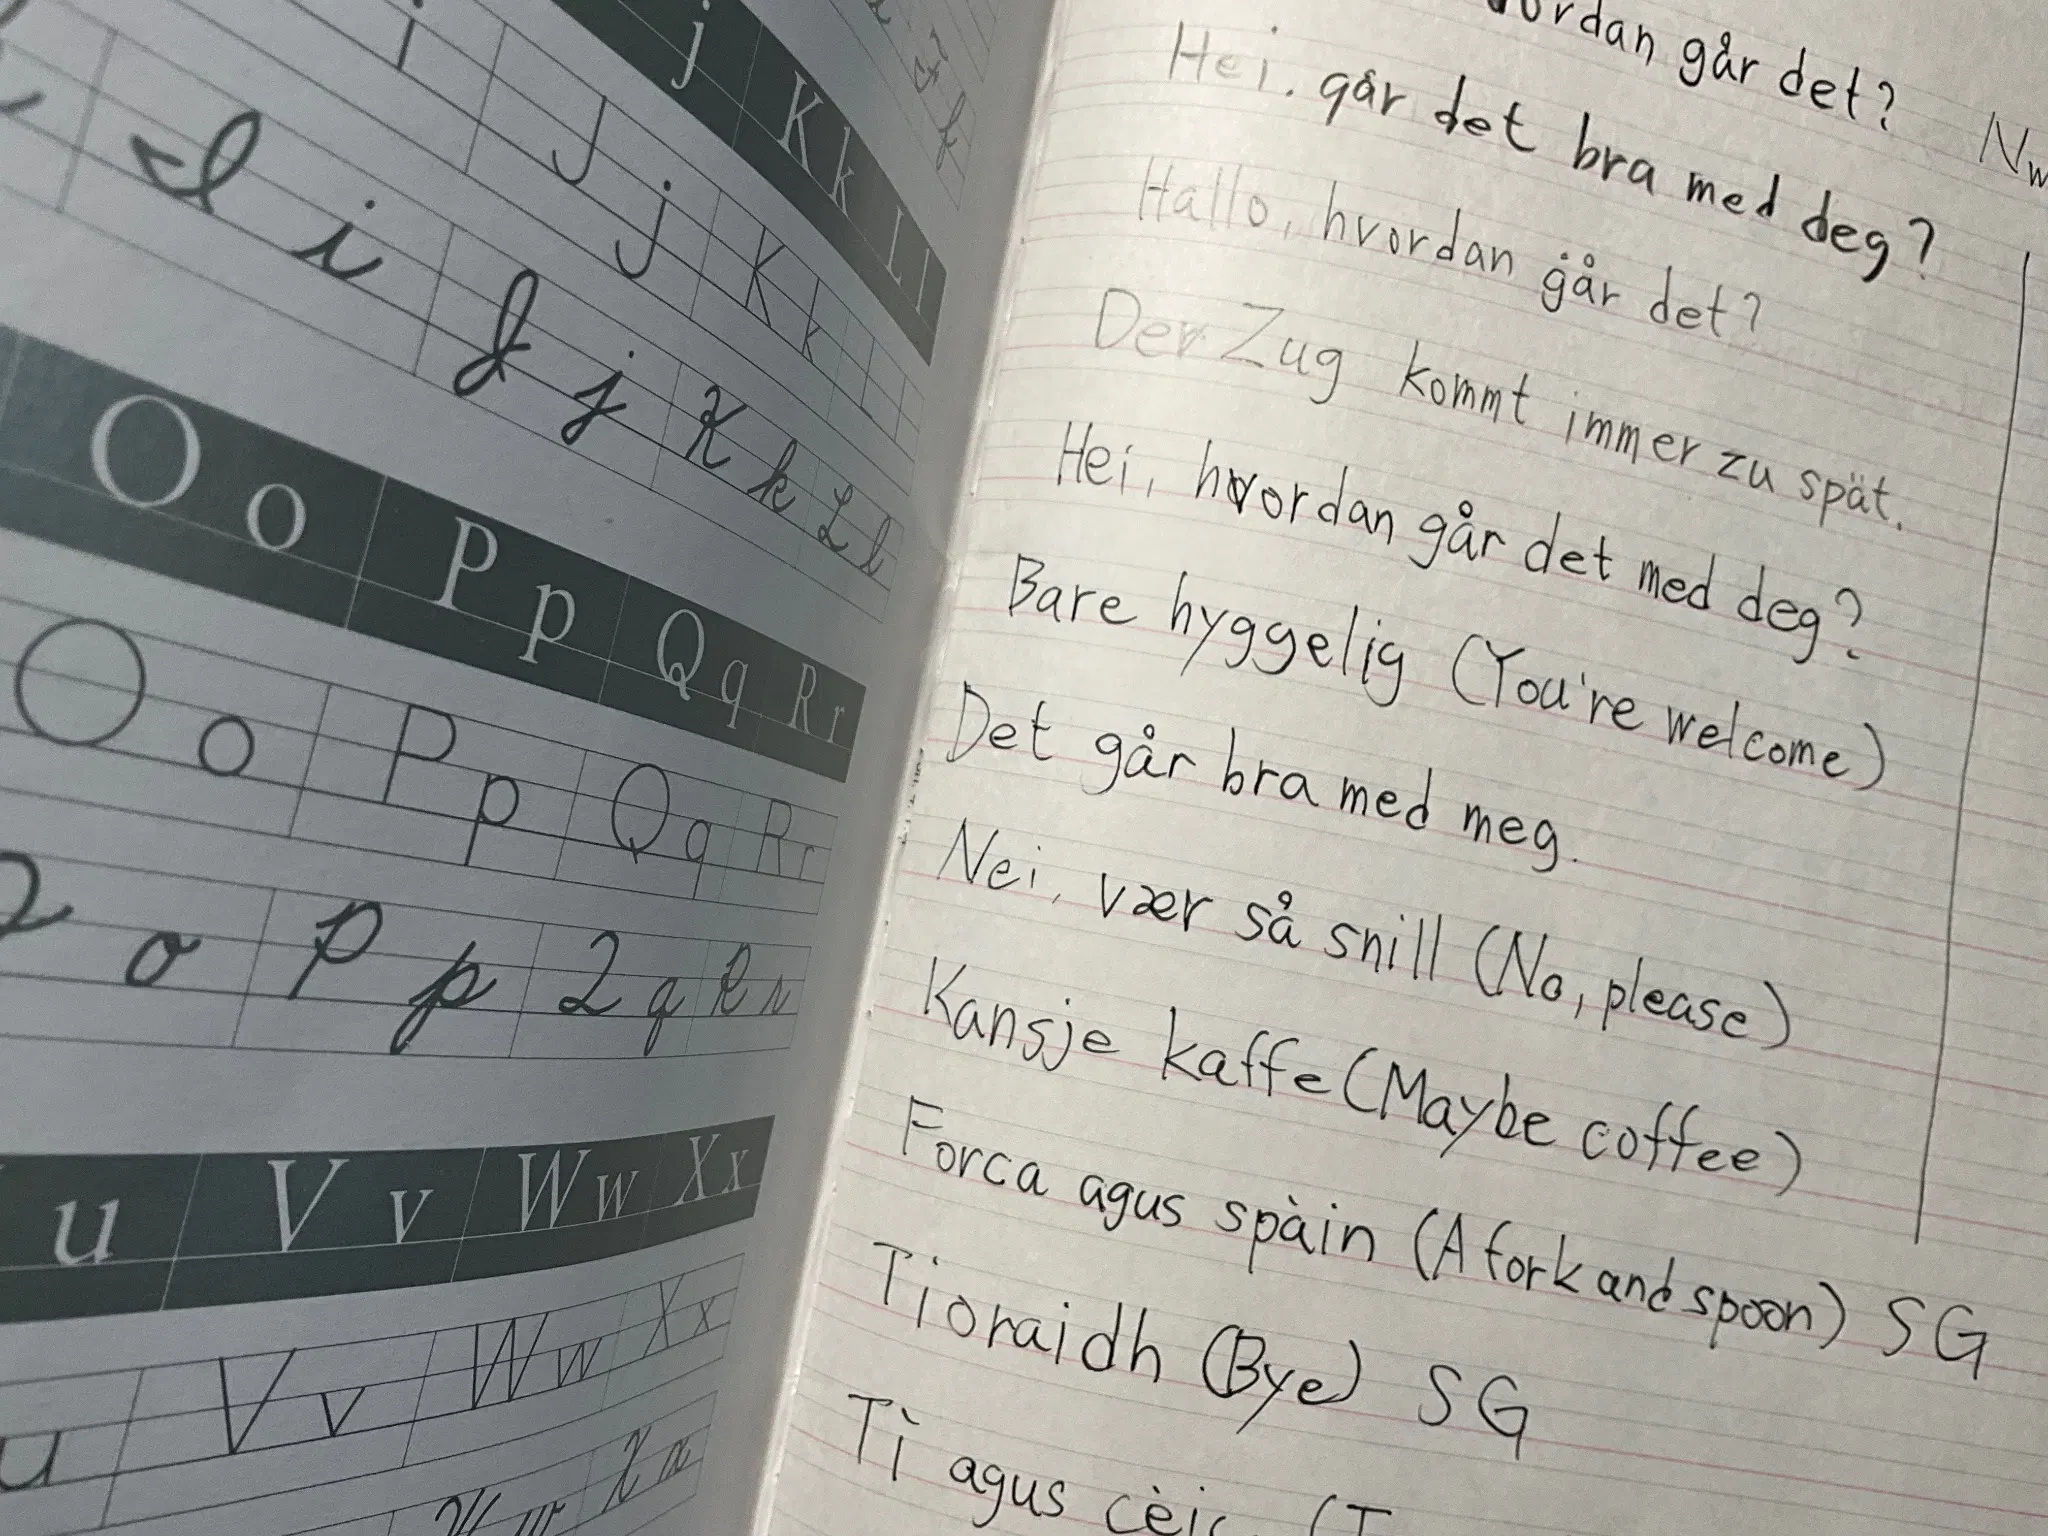 i
j K k L l
J j K k L l
I i J j K k L l
O o P p Q q R r
O o P p Q q R r
o P p Q q R r
u V v W w X x
u V v W w X x
W w X x
går det?
Hei. går det bra med deg?
Hallo, hvordan går det?
Der Zug kommt immer zu spät.
Hei, hvordan går det med deg?
Bare hyggelig (You're welcome)
Det går bra med meg.
Nei, vær så snill (No, please)
Kansje kaffe (Maybe coffee)
Forca agus spàin (A fork and spoon) SG
Tioraidh (Bye) SG
Tì agus